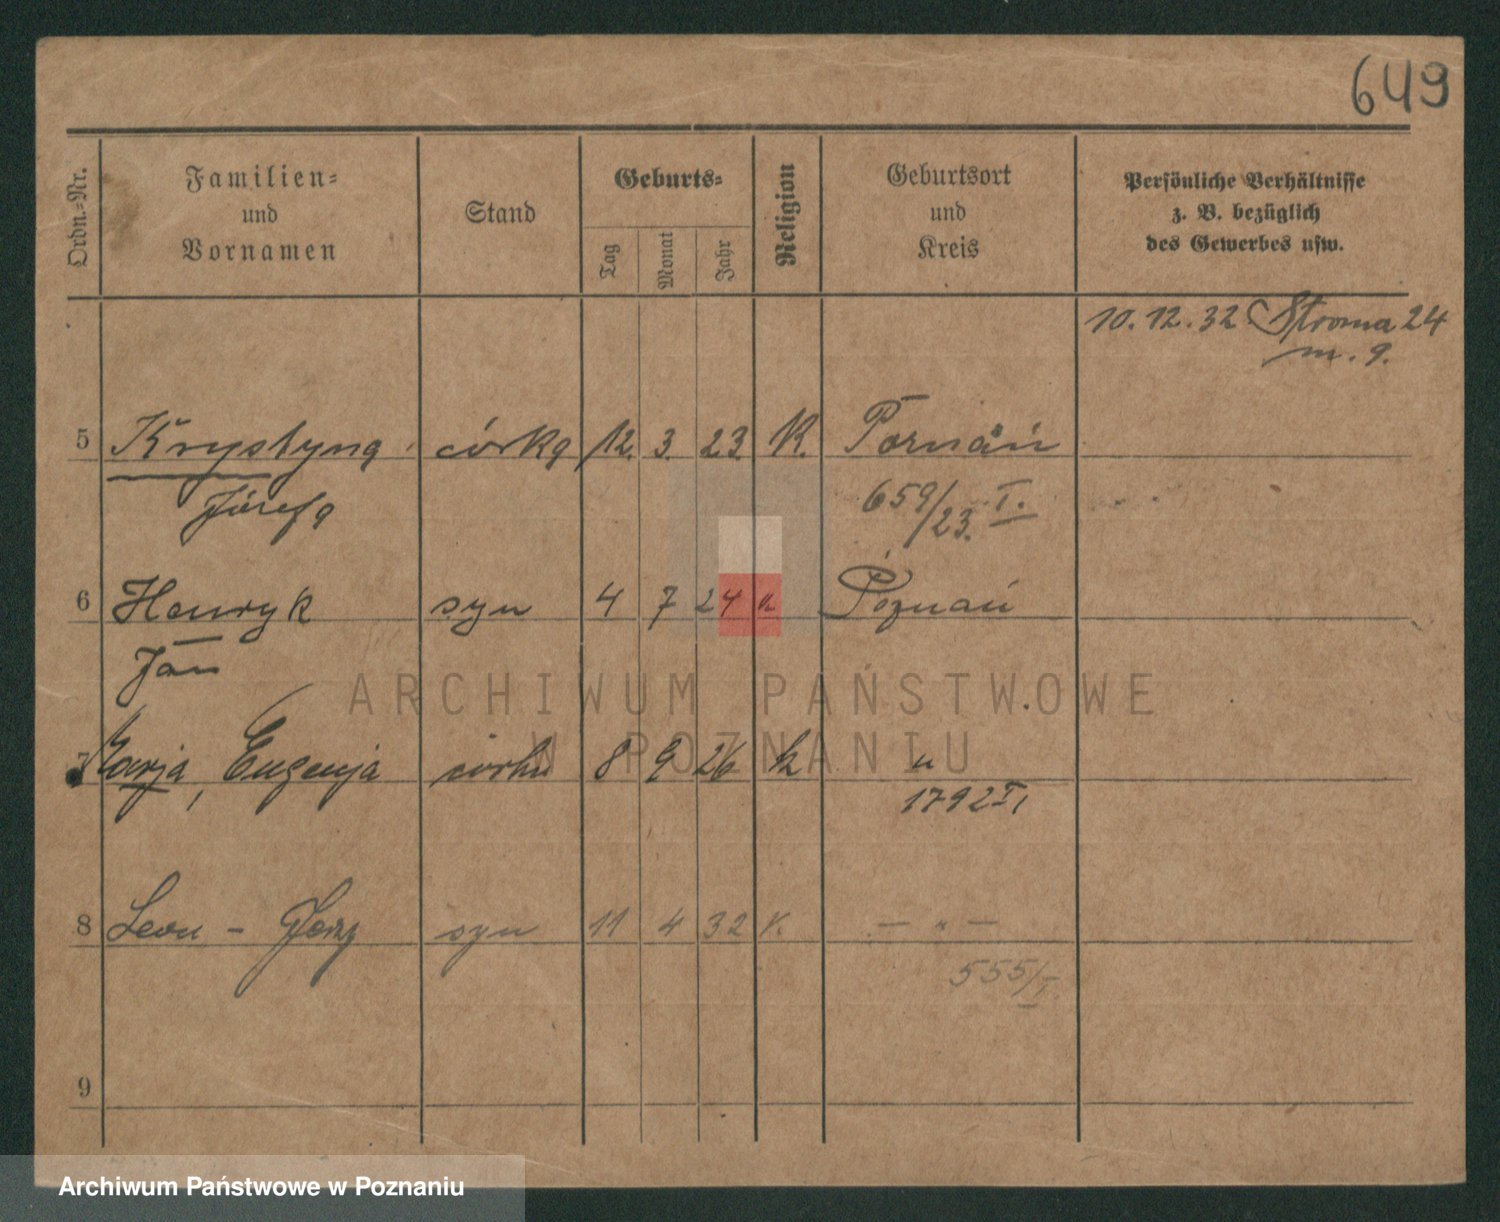 649
Ordn.=Nr.
Familien=
und
Vornamen
Stand
Geburts=
Tag
Monat
Jahr
Religion
Geburtsort
und
Kreis
Persönliche Verhältnisse
z. B. bezüglich
des Gewerbes usw.
10.12.32 Stroma 24
m. 9.
5 Krystyna córka 12. 3. 23. K. Poznań
Józefa 659/23. I.
6 Henryk syn 4 7 24 k Poznań
Jan
ARCHIWUM PAŃSTWOWE
W POZNANIU
7 Marja, Eugenja córka 8 9 26 k "
1792 I,
8 Leon - Jerzy syn 11 4 32 K. — " —
555/I.
9
Archiwum Państwowe w Poznaniu